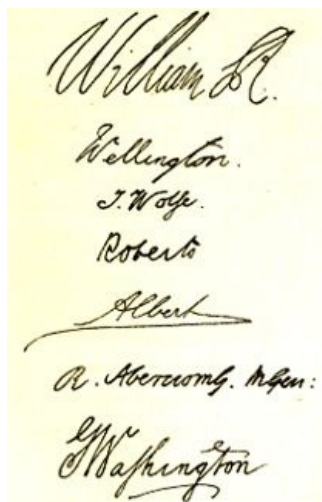 William R.
Wellington.
J. Wolfe.
Roberts
Albert
R. Abercromby. MGen:
GWashington